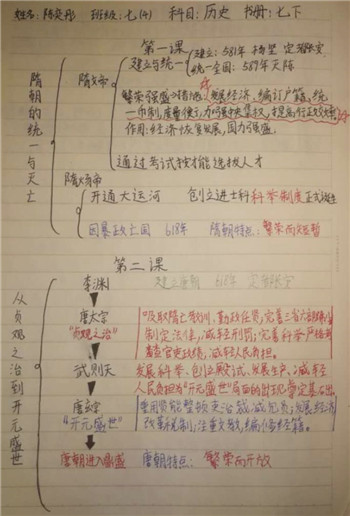 姓名:陈奕彤 班级:七(4) 科目:历史 书册:七下
第一课
隋朝的统一与灭亡
隋文帝
建立与统一
建立:581年 杨坚 定都长安
统一全国:589年灭陈
繁荣强盛 措施:发展经济、编订户籍、统
一币制,度量衡,加强中央集权,提高行政效率
作用:经济恢复发展,国力强盛
通过考试按才能选拔人才
隋炀帝
开通大运河 创立进士科 科举制度正式诞生
因暴政亡国 618年 隋朝特点:繁荣而短暂
第二课
从贞观之治到开元盛世
李渊 建立唐朝 618年 定都长安
唐太宗
"贞观之治"
吸取隋亡教训,勤政任贤,完善三省六部制
制定法律,减轻刑罚;完善科举 严格考
察官吏政绩,减轻人民负担。
武则天
发展科举,创立殿试,发展生产、减轻
人民负担 为"开元盛世"局面的出现奠定基础
唐玄宗
"开元盛世"
重用贤能 整顿吏治 裁减冗员;发展经济
改革税制;注重文教,编修经籍。
唐朝进入鼎盛 唐朝特点:繁荣而开放